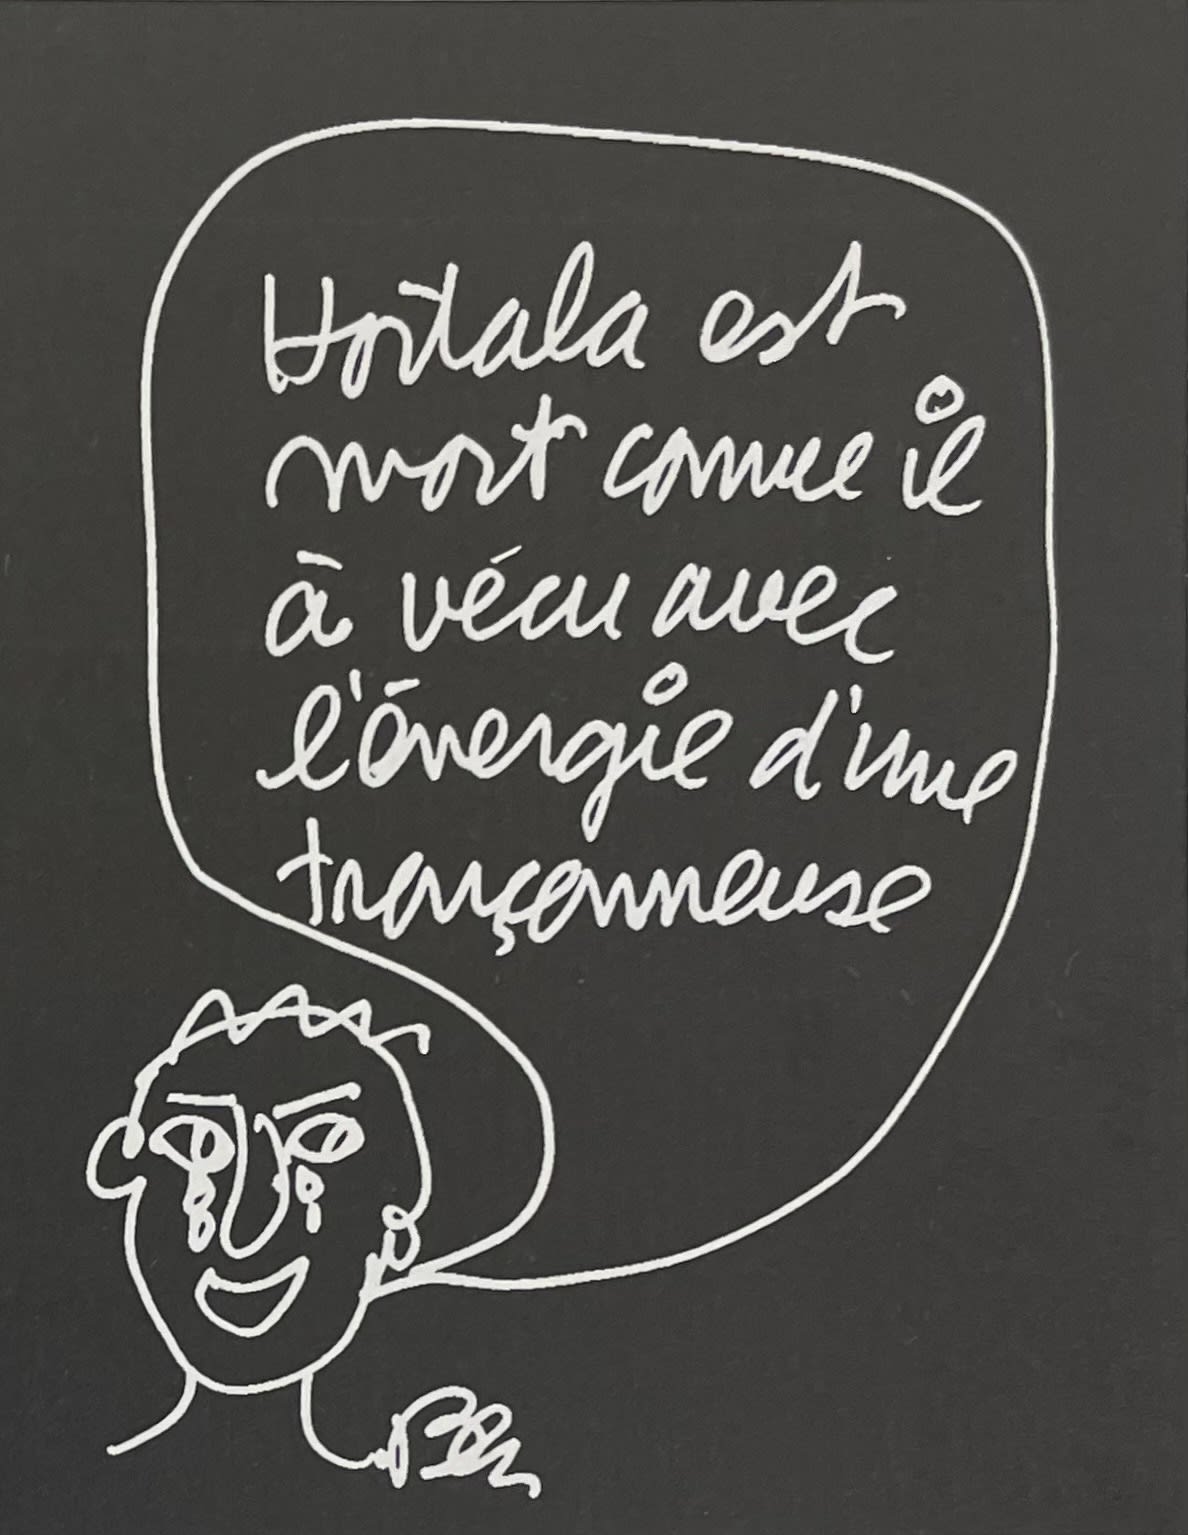 Hortala est
mort comme il
à vécu avec
l'énergie d'une
tronçonneuse
Ben